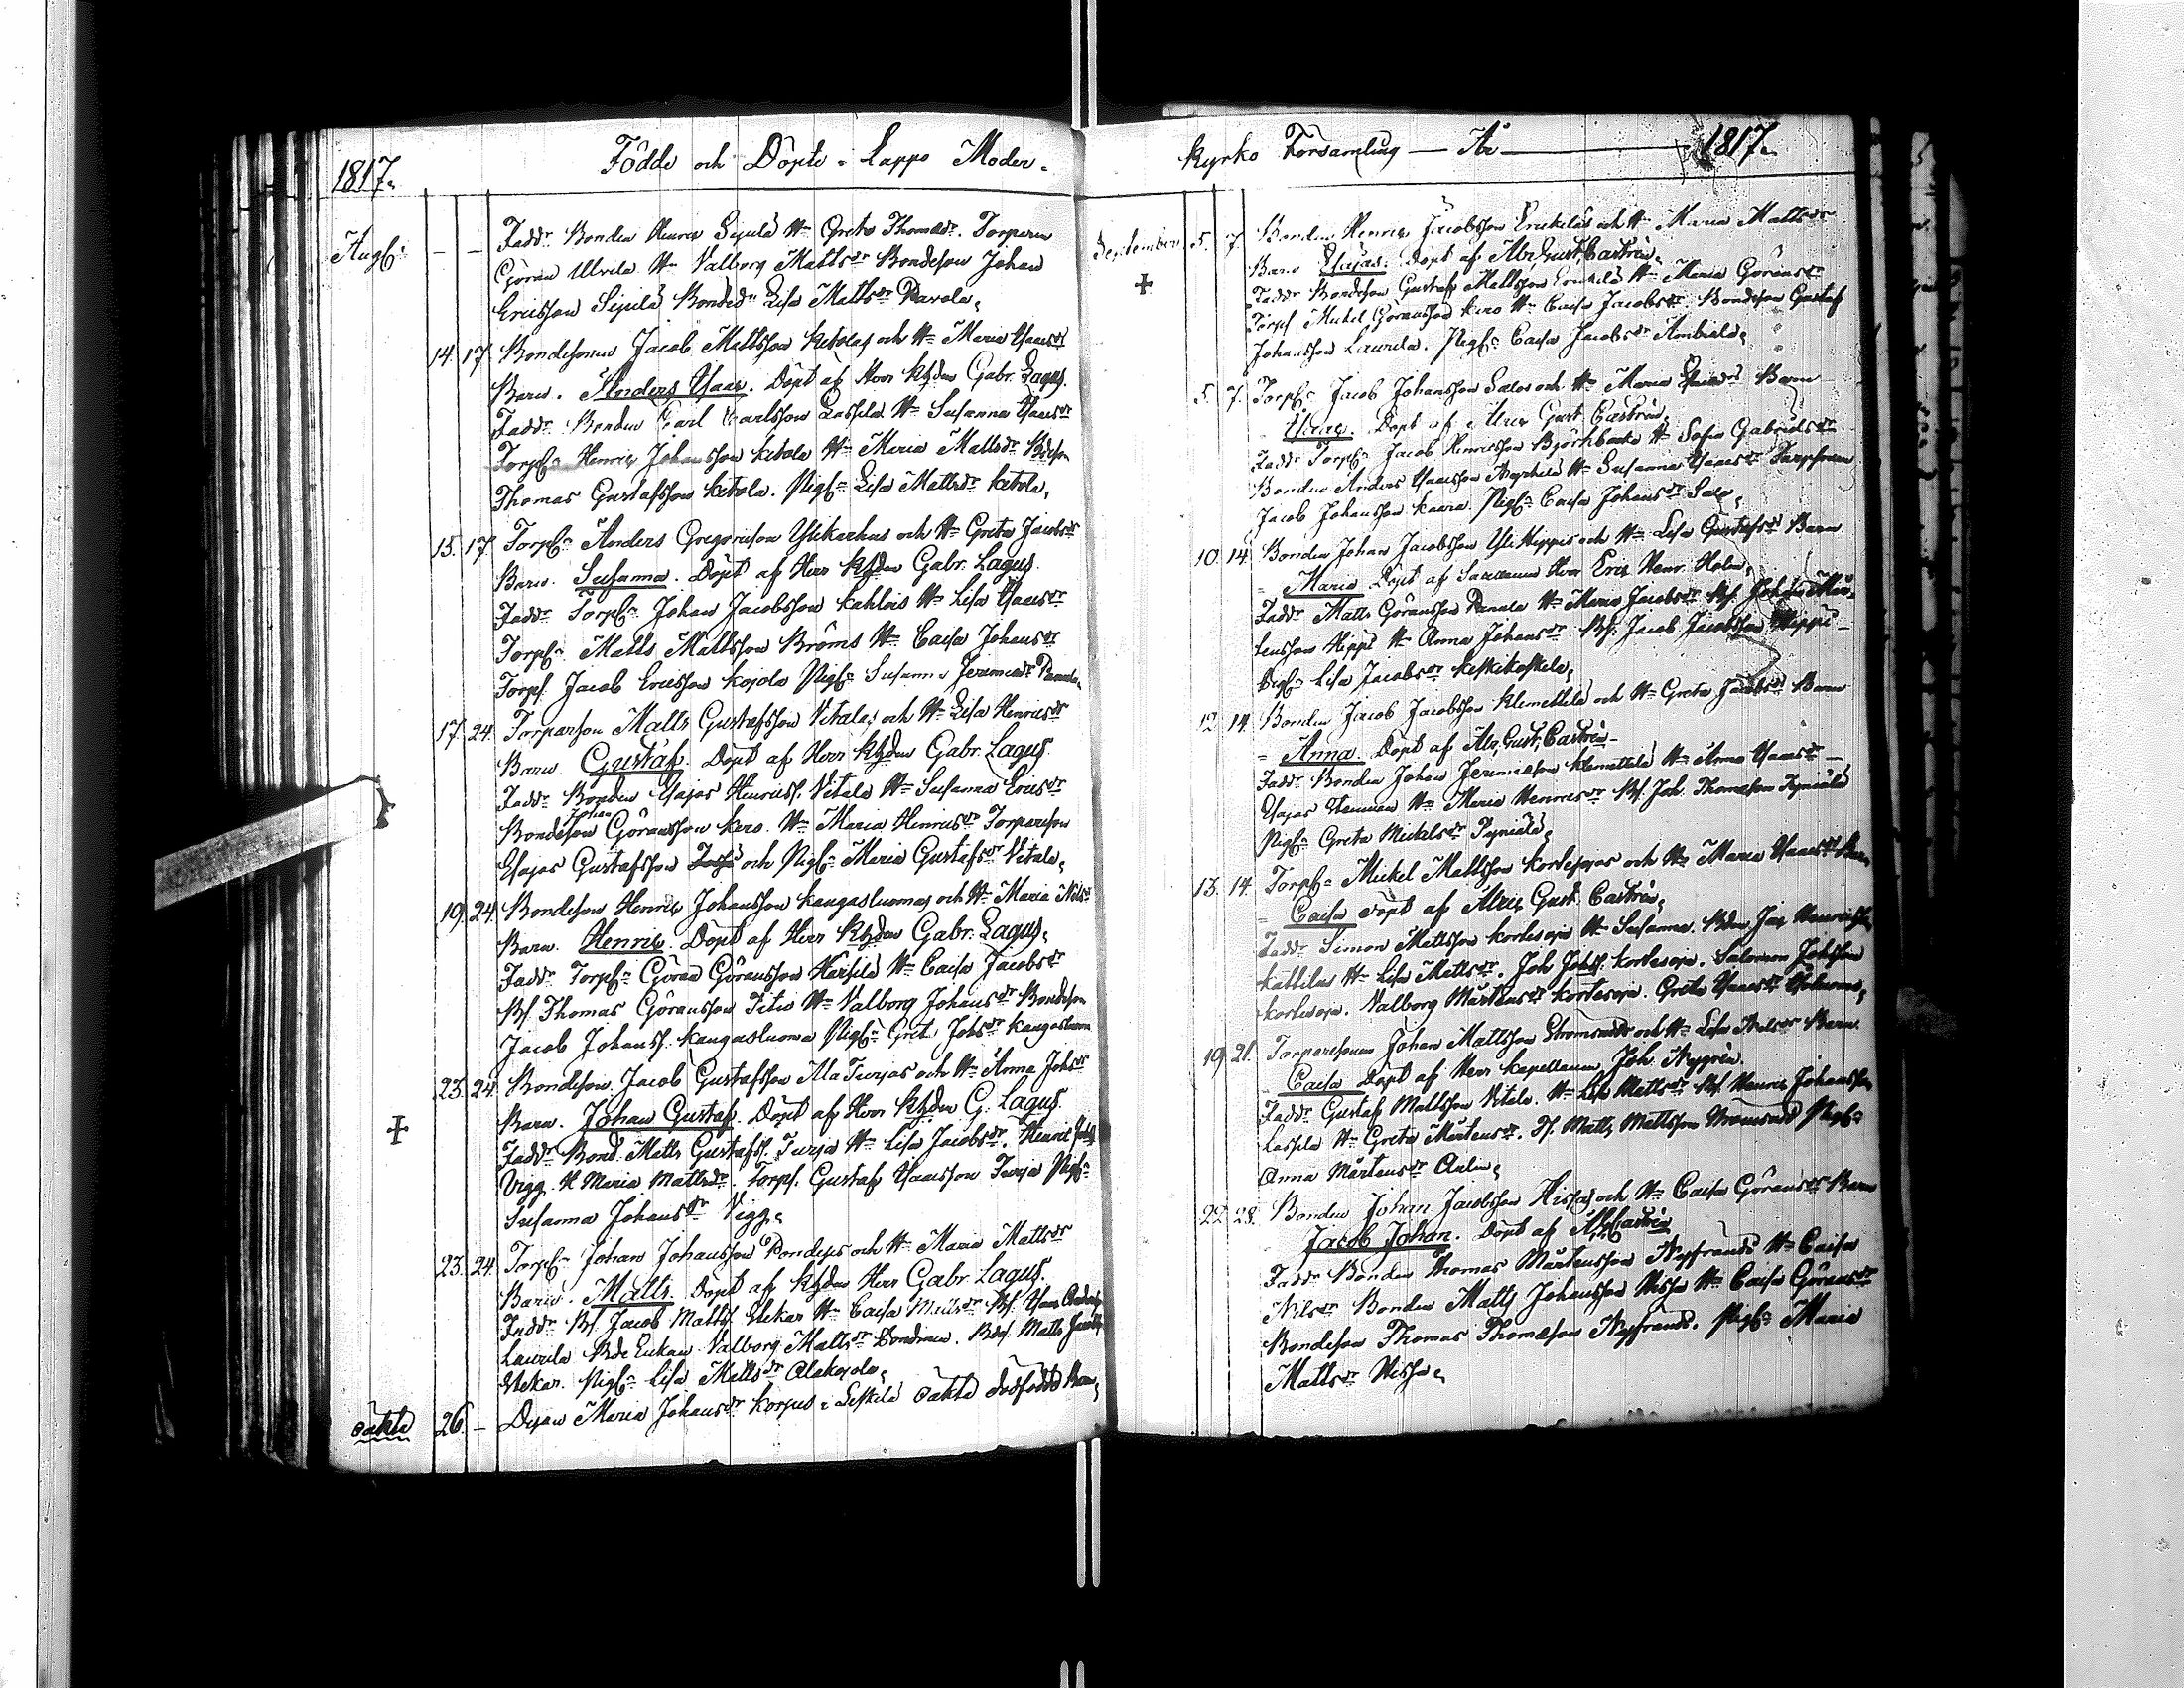 1817.
Födde och Döpte i Lappo Moder-
Augl:
- - Faddr Bonden Henric Sipilä Hn Greta Thomædr. Torparen
Göran Ulvila Hn Valborg Mattsdr Bondeson Johan
Ericsson Sipilä Bonded: Lisa Mattsdr Pavola.
14. 17. Bondesonen Jacob Mattsson Ketolas och Hn Maria Isaacsdr
Barn. Anders Isaac. Döpt af Herr Khden Gabr. Lagus.
Faddr Bonden Carl Carlsson Laspila Hn Susanna Isaacsdr
Torpn Henric Johansson Ketola Hn Maria Mattsdr
Thomas Gustafsson Ketola. Pign Lisa Mattsdr Ketola.
15. 17. Torpn Anders Gregorison och Hn Greta Jacobsdr
Barn. Susanna. Döpt af Herr Khden Gabr. Lagus.
Faddr Torpn Johan Jacobsson Hn Lisa Isaacsdr
Torpn Matts Mattsson Bröms Hn Caisa Johansdr
Torpf. Jacob Ericsson Kojola Pign Susanna Jeremiædr
17. 24. Torparson Matts Gustafsson Vitalas och Hn Lisa Henricsdr
Barn. Gustaf. Döpt af Herr Khden Gabr. Lagus.
Faddr Bonden Esajas Henricss. Vitala Hn Susanna Ericsdr
Johan
Bondeson Göransson Kero. Hn Maria Henricsdr Torpareson
Esajas Gustafsson och Pign Maria Gustafsdr Vitala.
19. 24. Bondeson Henric Johansson Kangasluomas och Hn Maria Nilsdr
Barn. Henric. Döpt af Herr Khden Gabr. Lagus.
Faddr Torpn Göran Göransson Harsilä Hn Caisa Jacobsdr
Bf Thomas Göransson Hn Valborg Johansdr Bondeson
Jacob Johanss. Kangasluoma Pign Gret. Johsdr Kangasluoma
23. 24. Bondeson Jacob Gustafsson Ala Turjas och Hn Anna Johsdr
+
Barn. Johan Gustaf. Döpt af Herr Khden G. Lagus.
Faddr Bond. Matts Gustafss. Turja Hn Lisa Jacobsdr. Henric
Vigg. H Maria Mattsdr. Torpf. Gustaf Isaacsson Turja Pign
Susanna Johansdr Vigg.
23. 24. Torpn Johan Johansson och Hn Maria Mattsdr
Barn. Matts. Döpt af Khden Herr Gabr. Lagus.
Faddr Bf. Jacob Matts. Hn Caisa Mattsdr Bf. Isaac
Laurila Bde Enkan Valborg Mattsdr. Bdsf Matts
Pign Lisa Mattsdr Alakojola.
oäkta 26. - Pigan Maria Johansdr Korpus i Liskila oäkta dödfödt Barn.
Kyrko Församling — År — 1817.
September
5. 7. Bonden Henric Jacobsson Erickilas och Hn Maria Mattsdr
+
Barn Esajas. Döpt af Alr, Gust, Castrén.
Faddr Bondeson Gustaf Mattsson Hn Maria Göransdr
Torpf. Mickel Göransson Kero Hn Caisa Jacobsdr Bondeson Gustaf
Johansson Laurila. Pign Caisa Jacobsdr
5. 7. Torpn Jacob Johansson Salos och Hn Maria Barn
Isaac. Döpt af Alric Gust. Castrén.
Faddr Torpn Jacob Henricsson Björkbacka Hn Sofia Gabrielsdr
Bonden Anders Isaacsson Hn Susanna Isaacsdr
Jacob Johansson Kaara Pign Caisa Johansdr Salo.
10. 14. Bonden Johan Jacobsson Yli Hippis och Hn Lisa Gustafsdr Barn
- Maria Döpt af Herr Eric Henr. Holm.
Faddr Matts Göransson Hn Maria Jacobsdr Bf.
tensson Hippi Hn Anna Johansdr. Bf. Jacob Jacobsson Hippi -
Pign Lisa Jacobsdr Keskikoskela.
12. 14. Bonden Jacob Jacobsson Klemettilä och Hn Greta Jacobsdr Barn
- Anna. Döpt af Alr, Gust, Castrén -
Faddr Bonden Johan Jeremiæson Klemettilä Hn Anna Isaacsdr -
Esajas Hn Maria Henricsdr Bf. Joh. Thomæson
Pign Greta Mickelsdr
13. 14. Torpn Mickel Mattsson Kortesojas och Hn Maria Isaacsdr Barn
- Caisa döpt af Alric Gust. Castrén.
Faddr Simon Mattsson Kortesoja Hn Susanna. Bden
Kattilas Hn Lisa Mattsdr. Joh Johss. Kortesoja. Salomon Johsson
Kortesoja. Valborg Mårtensdr Kortesoja. Greta Isaacsdr
19. 21. Torparesonen Johan Mattsson och Hn Lisa Nilsdr Barn
Caisa Döpt af Herr Kapellanen Joh. Nygrén.
Faddr Gustaf Mattsson Vitala. Hn Lisa Mattsdr Bf. Henric Johansson
Laspila Hn Greta Mårtensdr. Tf. Matts Mattsson Pign
Anna Mårtensdr
22. 28. Bonden Johan Jacobsson och Hn Caisa Göransdr Barn
Jacob Johan. Döpt af Castrén
Faddr Bonden Thomas Mårtensson Hn Caisa
Nilsdr Bonden Matts Johansson Hissa Hn Caisa Göransdr
Bondeson Thomas Thomæson. Pign Maria
Mattsdr Hissa.